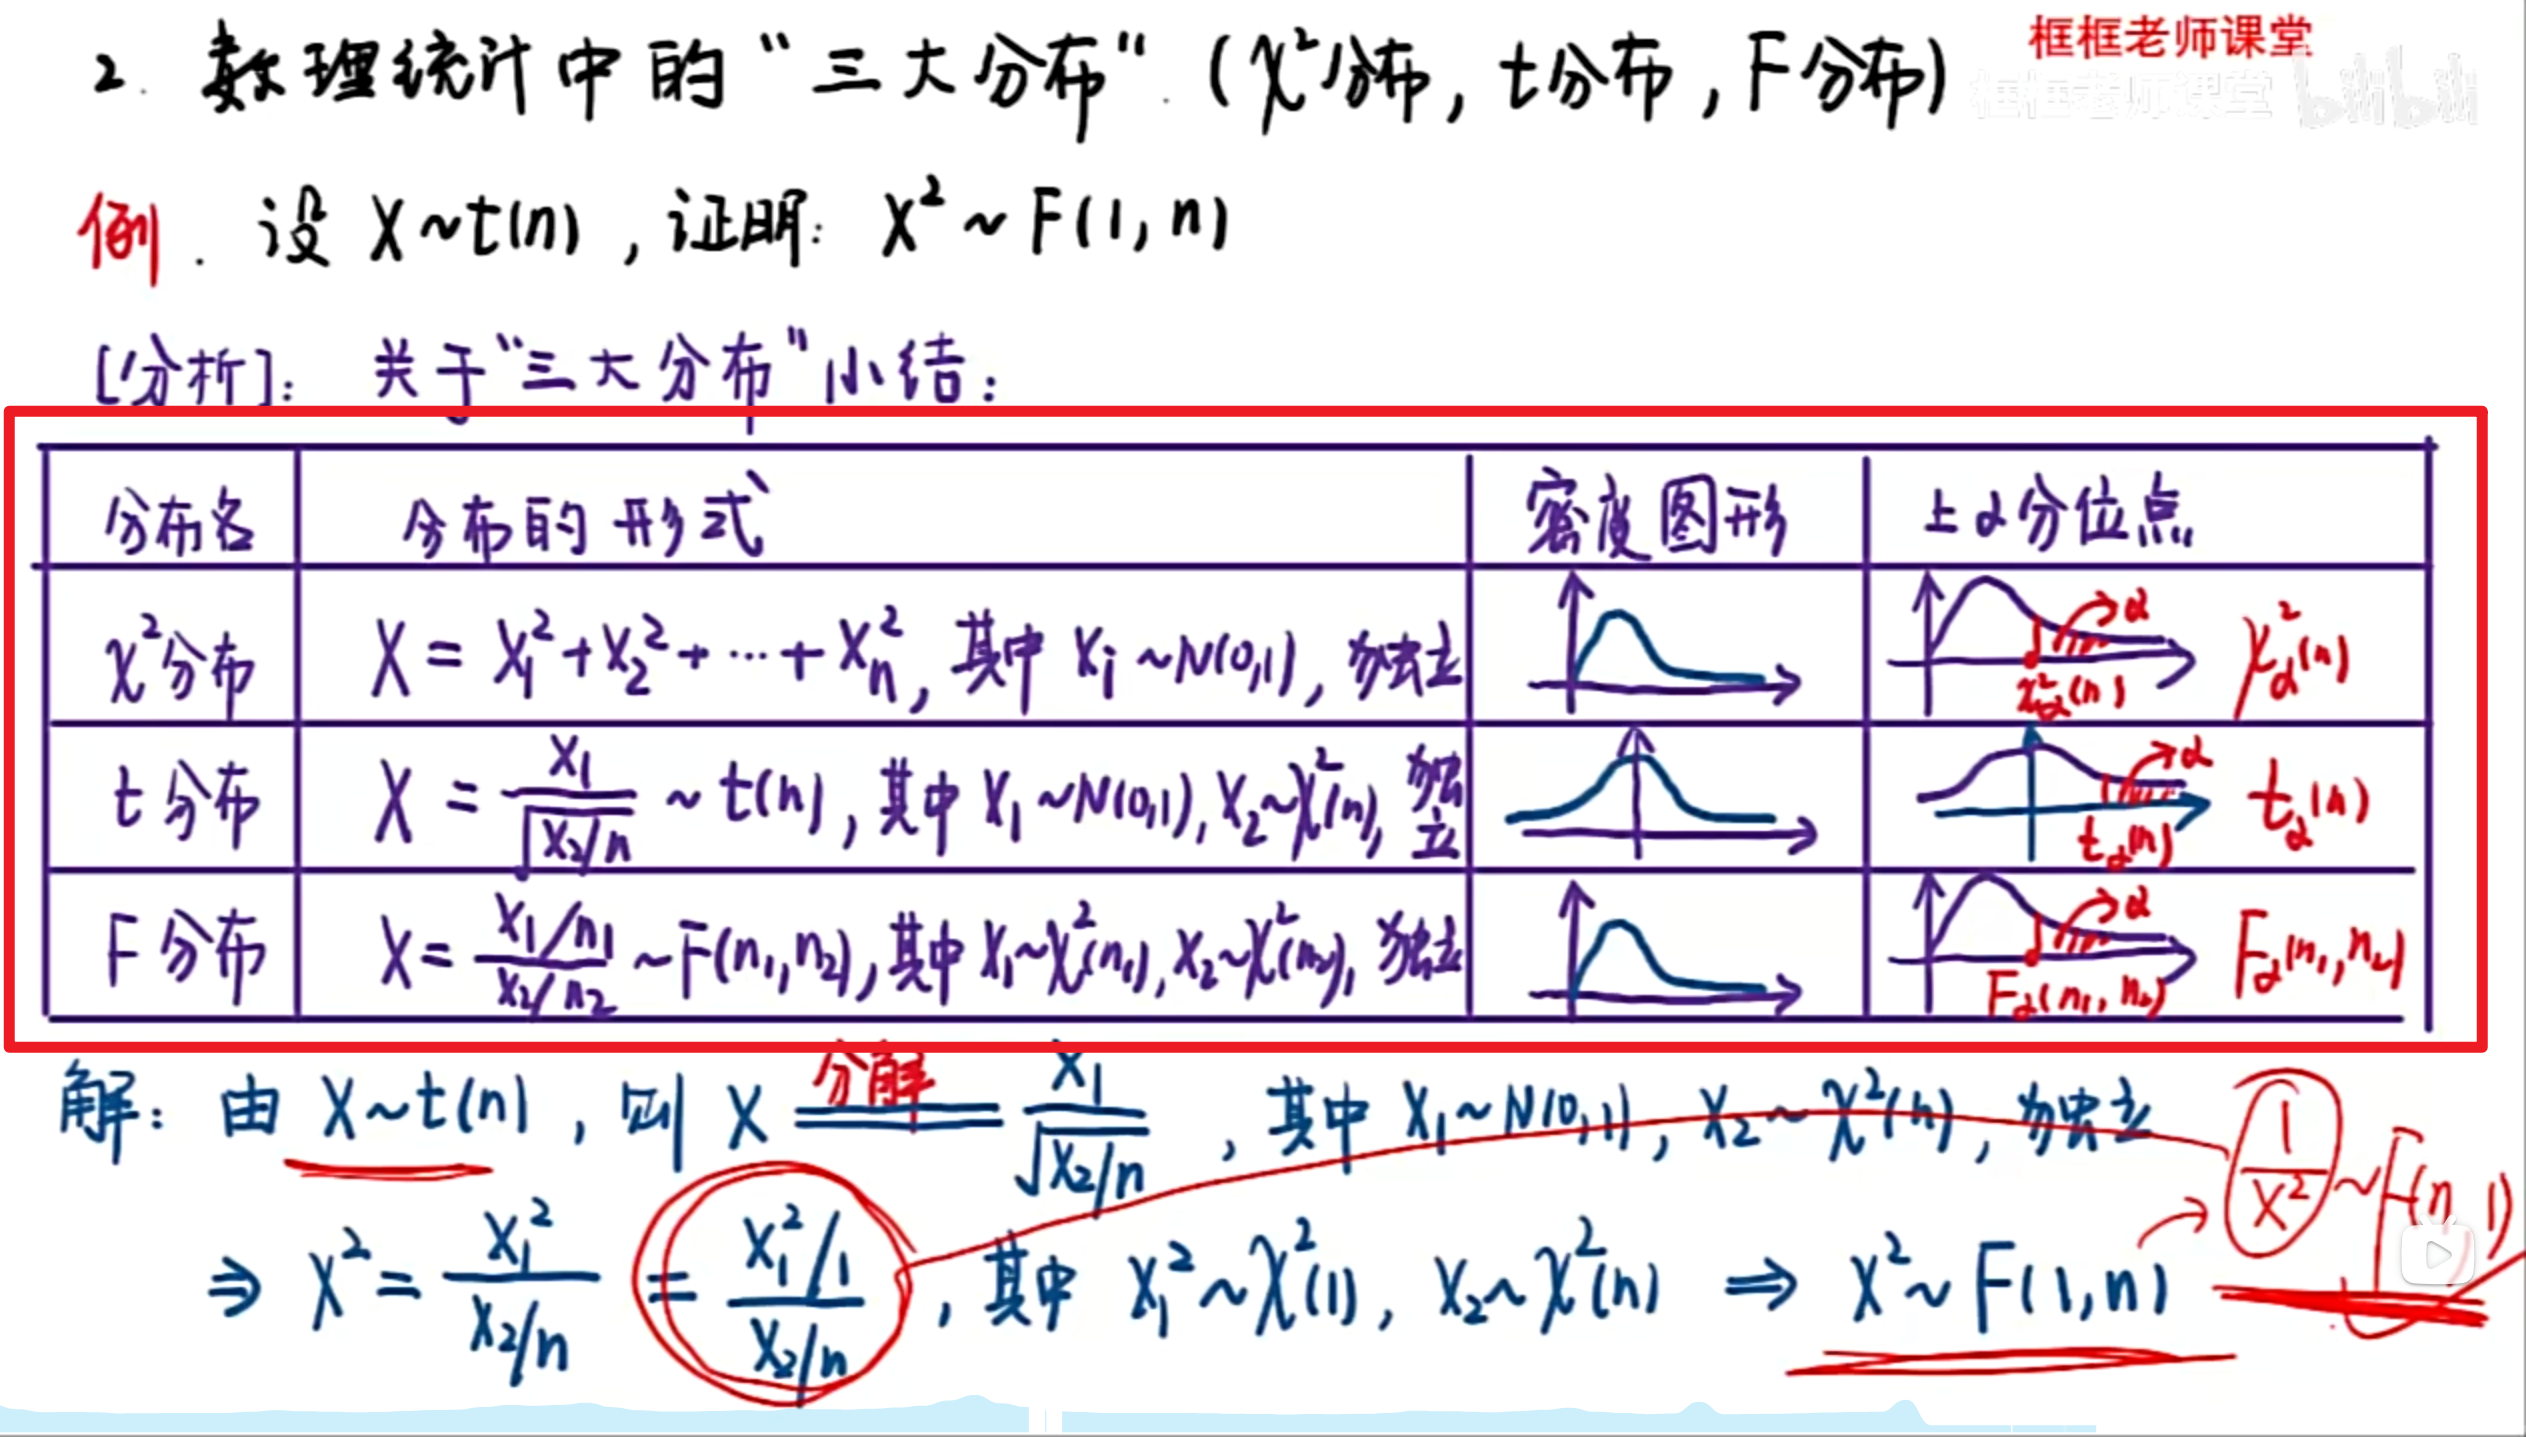 框框老师课堂
2. 数理统计中的“三大分布”. (χ²分布, t分布, F分布)
框框老师课堂 bilibili
例. 设 X~t(n), 证明: X² ~ F(1, n)
[分析]: 关于“三大分布”小结:
分布名 分布的形式 密度图形 上α分位点
χ²分布 X = X₁² + X₂² + ··· + Xₙ², 其中 Xᵢ ~N(0,1), 独立 α χ²_α(n) χ²_α(n)
t分布 X = X₁/√(X₂/n) ~ t(n), 其中 X₁ ~N(0,1), X₂~χ²(n), 独立 α t_α(n) t_α(n)
F分布 X = (X₁/n₁)/(X₂/n₂) ~F(n₁,n₂), 其中 X₁~χ²(n₁), X₂~χ²(n₂), 独立 α F_α(n₁, n₂) F_α(n₁,n₂)
解: 由 X~t(n), 则 X 分解 = X₁/√(X₂/n), 其中 X₁ ~ N(0,1), X₂ ~ χ²(n), 独立
1/X² ~ F(n,1)
⇒ X² = X₁²/(X₂/n) = (X₁²/1)/(X₂/n), 其中 X₁² ~ χ²(1), X₂ ~ χ²(n) ⇒ X² ~ F(1,n)